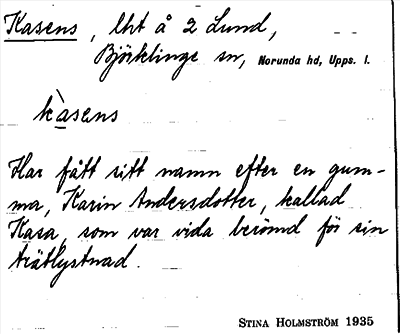 Kasens, lht å 2 Lund,
Björklinge sn, Norunda hd, Upps. l.
kàsens
Har fått sitt namn efter en gum-
ma, Karin Andersdotter, kallad
Kasa, som var vida berömd för sin
trätlystnad.
STINA HOLMSTRÖM 1935